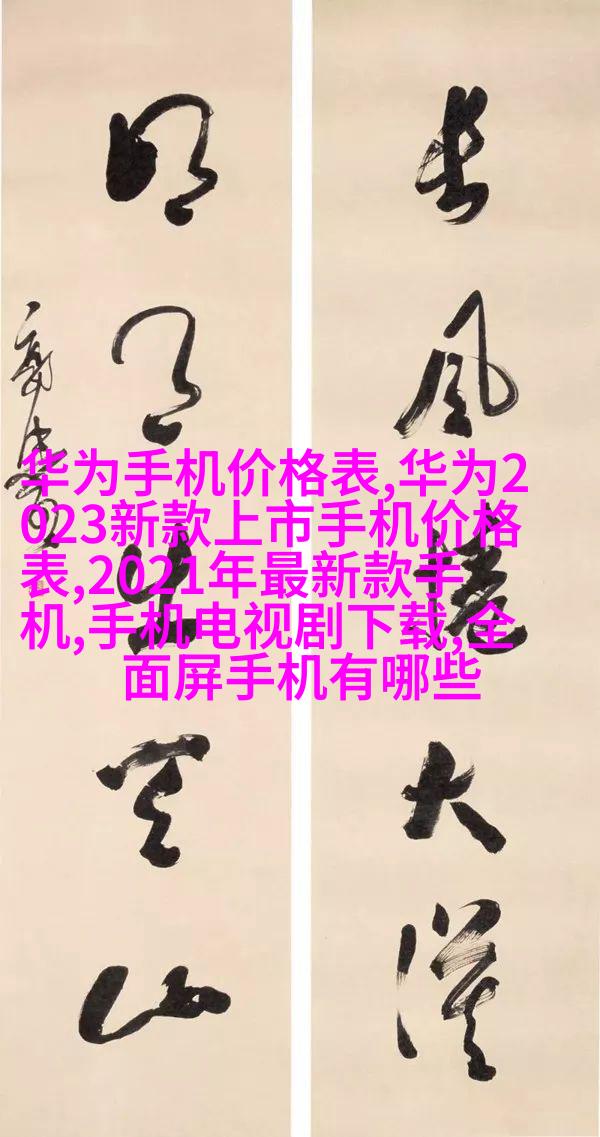 长风捲大漠
明月出天山
华为手机价格表,华为2
023新款上市手机价格
表,2021年最新款手
机,手机电视剧下载,全
面屏手机有哪些